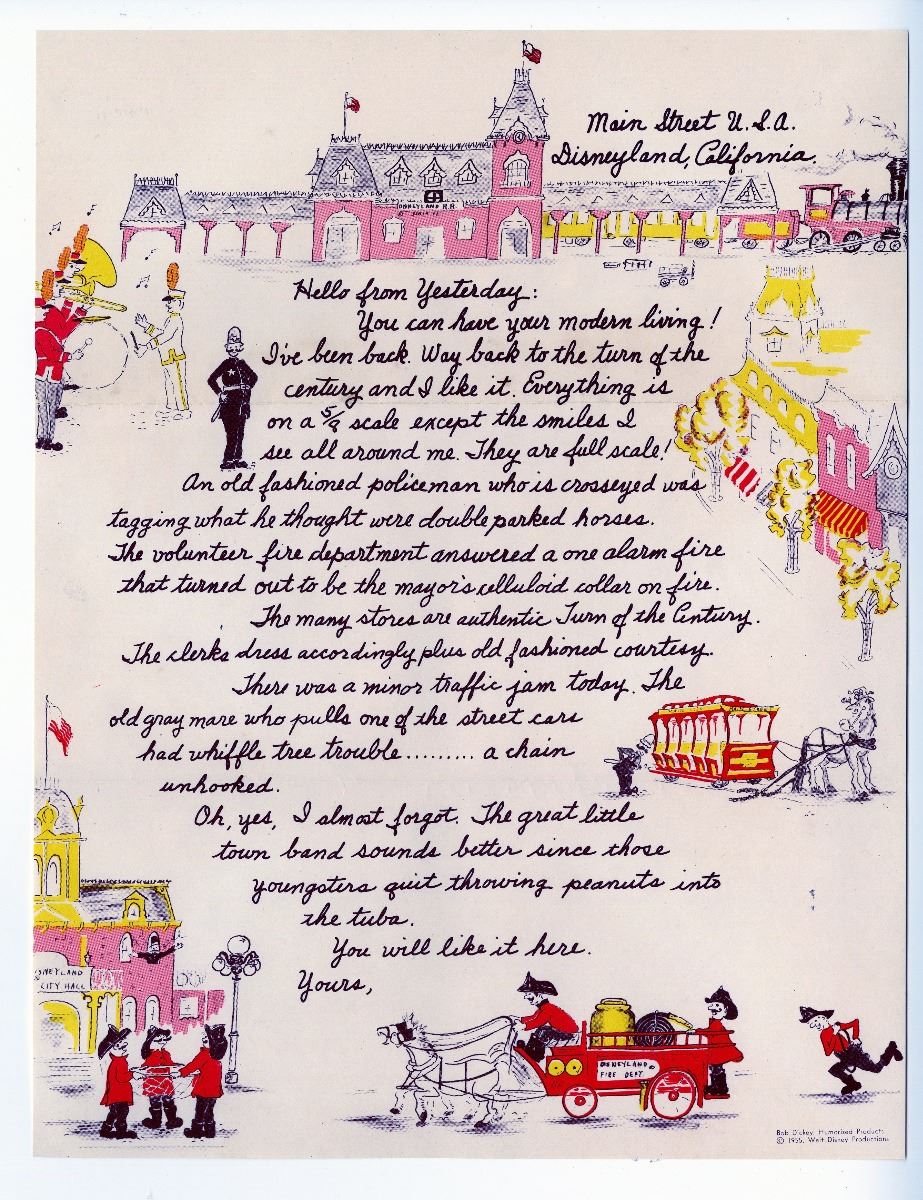 Main Street U.S.A.
Disneyland, California.
DISNEYLAND R.R.
Hello from Yesterday:
You can have your modern living!
I've been back. Way back to the turn of the
century and I like it. Everything is
on a 5/8 scale except the smiles I
see all around me. They are full scale!
An old fashioned policeman who is crosseyed was
tagging what he thought were double parked horses.
The volunteer fire department answered a one alarm fire
that turned out to be the mayor's celluloid collar on fire.
The many stores are authentic Turn of the Century.
The clerks dress accordingly plus old fashioned courtesy.
There was a minor traffic jam today. The
old gray mare who pulls one of the street cars
had whiffle tree trouble......... a chain
unhooked.
Oh, yes, I almost forgot. The great little
town band sounds better since those
youngsters quit throwing peanuts into
the tuba.
You will like it here.
Yours,
DISNEYLAND
CITY HALL
DISNEYLAND
FIRE DEPT
Bob Dickey, Humorized Products
© 1955, Walt Disney Productions